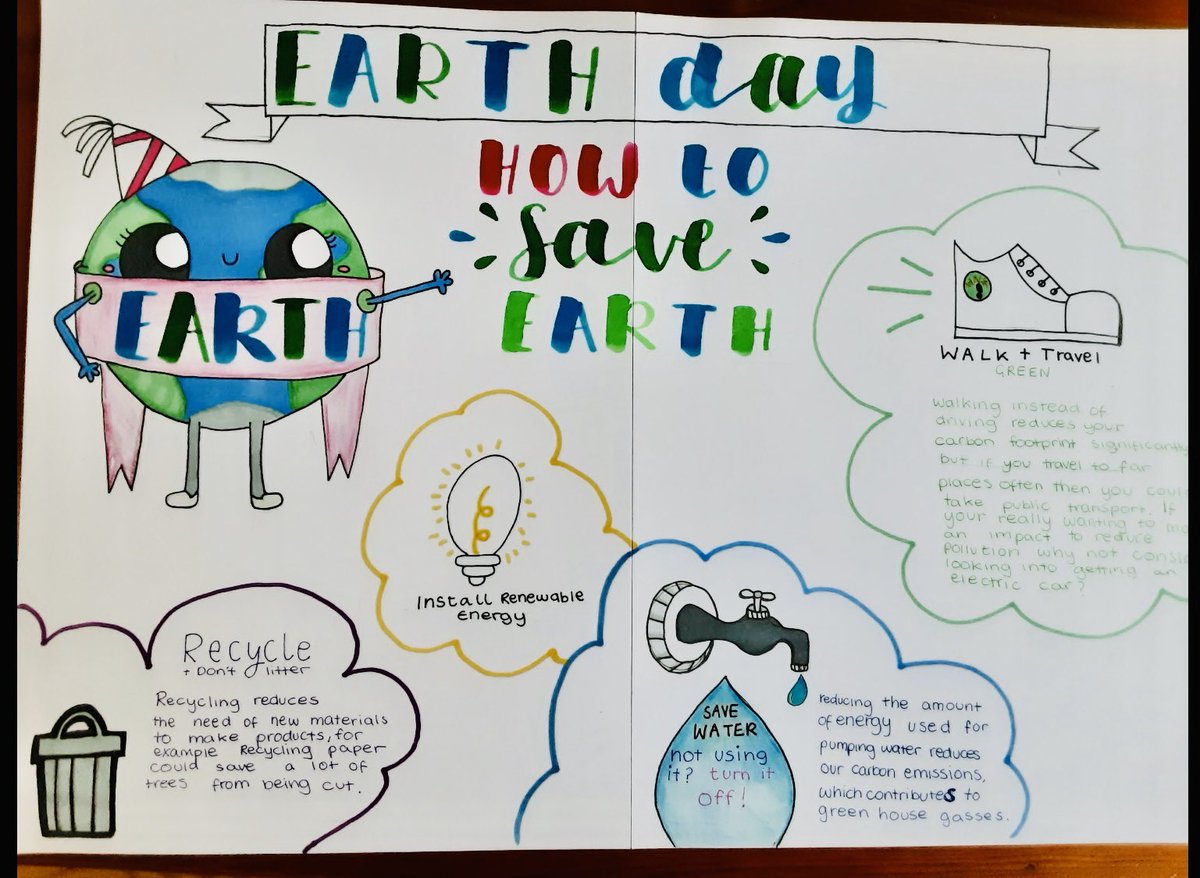 EARTH day
HOW to
Save
EARTH
EARTH
WALK + Travel
GREEN
walking instead of
driving reduces your
carbon footprint significantly
but if you travel to far
places often then you could
take public transport. If
your really wanting to
an impact to reduce
pollution why not
looking into getting an
electric car?
Install Renewable
Energy
Recycle
+ Don't litter
Recycling reduces
the need of new materials
to make products, for
example Recycling paper
could save a lot of
trees from being cut.
SAVE
WATER
not using
it? turn it
off!
reducing the amount
of energy used for
pumping water reduces
our carbon emissions,
which contributes to
green house gasses.